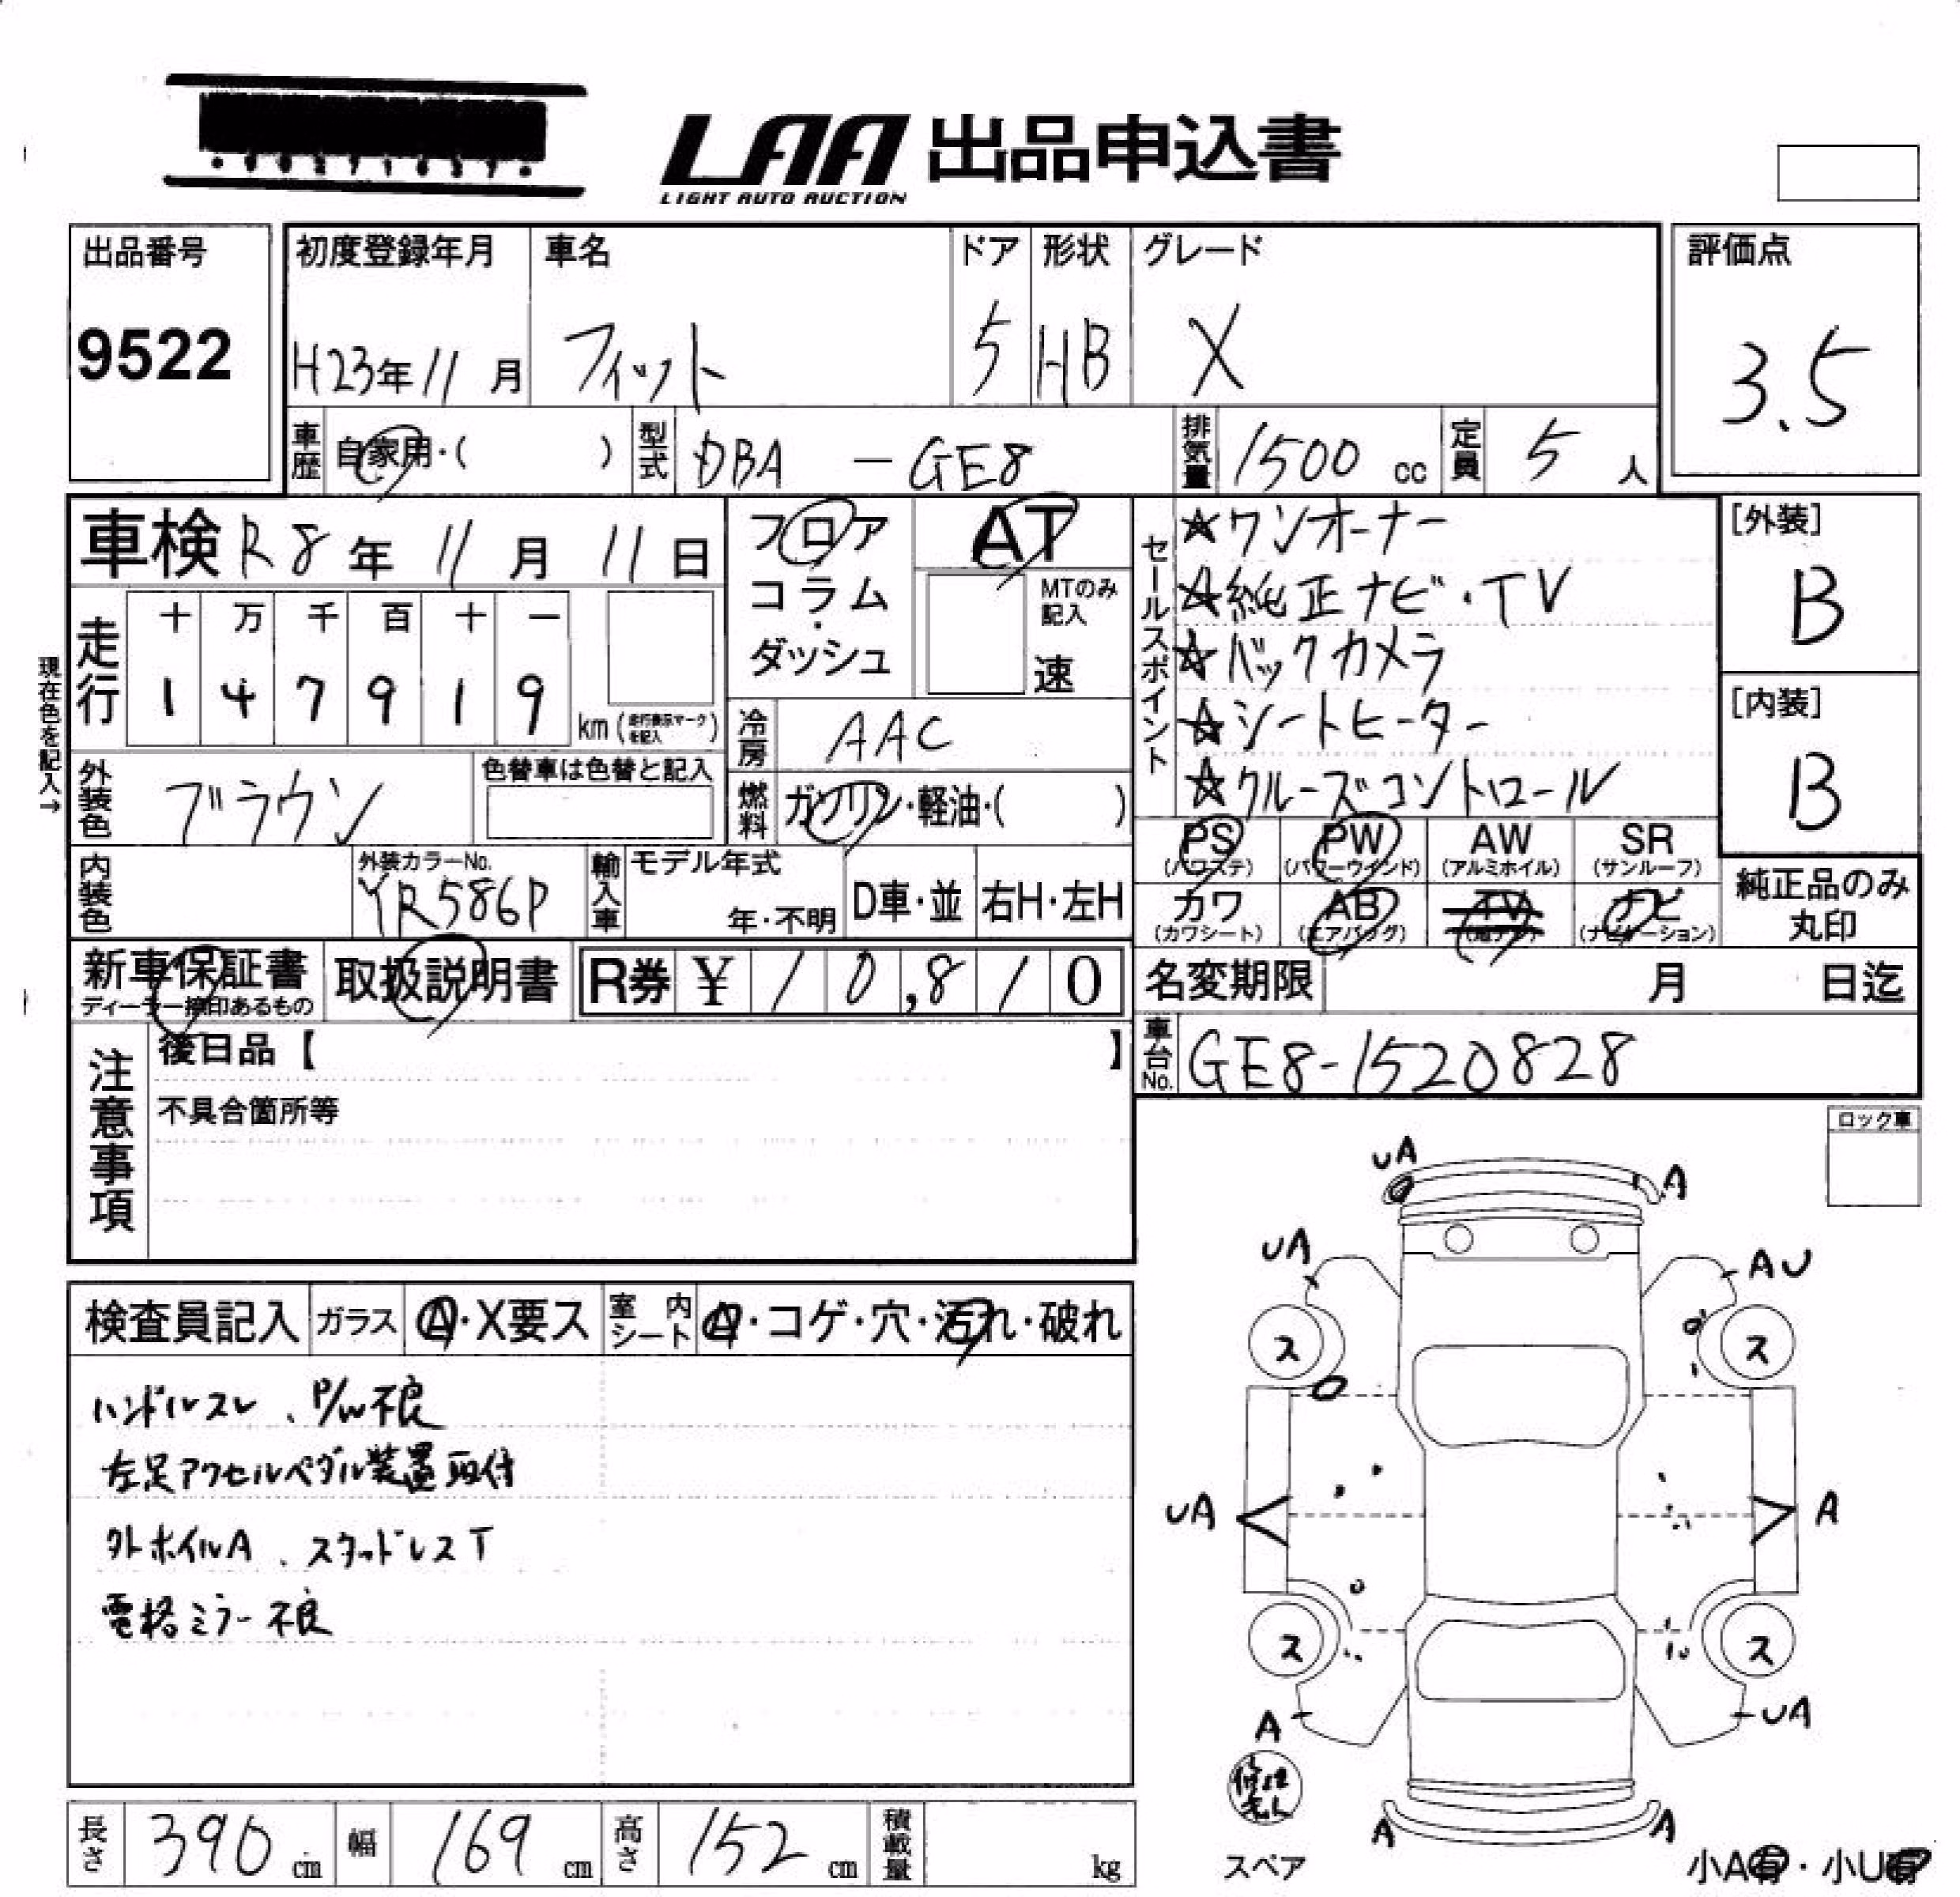 LAA 出品申込書
LIGHT AUTO AUCTION
出品番号
9522
初度登録年月
H23年11月
車名
フィット
ドア
5
形状
HB
グレード
X
評価点
3.5
車歴 自家用・( )
型式 DBA - GE8
排気量 1500 cc
定員 5 人
車検 R8年 11月 11日
フロア
コラム
・
ダッシュ
AT
MTのみ
記入
速
セールスポイント
☆ワンオーナー
☆純正ナビ・TV
☆バックカメラ
☆シートヒーター
☆クルーズコントロール
[外装]
B
[内装]
B
現在色を記入→
走行
十 万 千 百 十 一
1 4 7 9 1 9
km (走行表示マークを記入)
冷房 AAC
外装色 ブラウン
色替車は色替と記入
燃料 ガソリン・軽油・( )
PS (パワステ)
PW (パワーウインド)
AW (アルミホイル)
SR (サンルーフ)
カワ (カワシート)
AB (エアバッグ)
TV
ナビ (ナビゲーション)
純正品のみ
丸印
内装色
外装カラーNo.
YR586P
輸入車
モデル年式
年・不明
D車・並
右H・左H
新車保証書
ディーラー捺印あるもの
取扱説明書
R券 ¥ 10,810
名変期限 月 日迄
車台No. GE8-1520828
注意事項
後日品【 】
不具合箇所等
ロック車
検査員記入
ガラス A・X要ス
室内シート
・コゲ・穴・汚れ・破れ
ハンドルスレ、P/W不良
左足アクセルペダル装置取付
外ホイルA、スタッドレスT
電格ミラー不良
UA
A
UA
AU
ス
ス
UA
A
ス
ス
A
UA
修理キット
A
A
スペア
小A有・小U有
長さ 390 cm
幅 169 cm
高さ 152 cm
積載量 kg